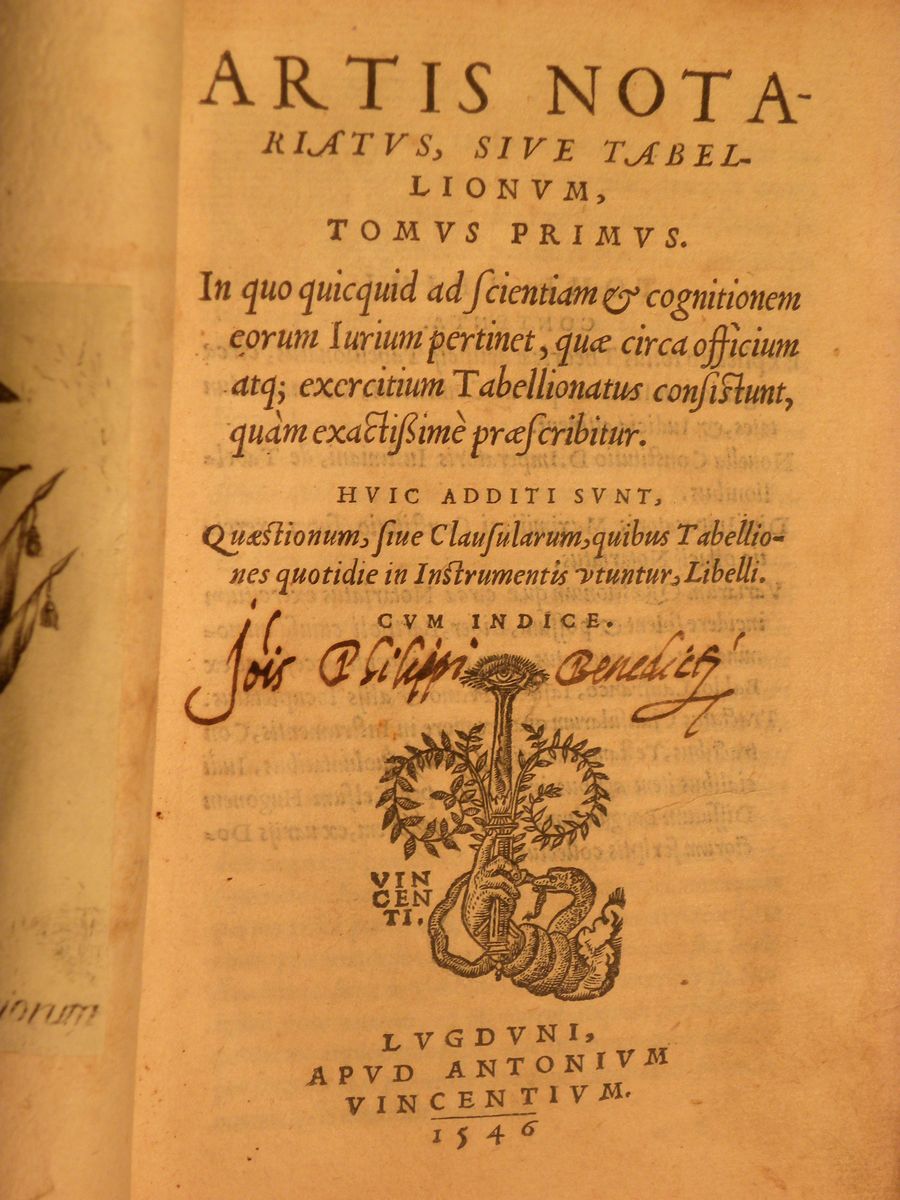 ARTIS NOTA-
RIATVS, SIVE TABEL-
LIONVM,
TOMVS PRIMVS.
In quo quicquid ad ſcientiam & cognitionem
eorum Iurium pertinet, quæ circa officium
atq; exercitium Tabellionatus conſiſtunt,
quàm exactißimè præſcribitur.
HVIC ADDITI SVNT,
Quæſtionum, ſiue Clauſularum, quibus Tabellio-
nes quotidie in Inſtrumentis vtuntur, Libelli.
CVM INDICE.
Jois Philippi Benedicti
VIN
CEN
TI.
LVGDVNI,
APVD ANTONIVM
VINCENTIVM.
1546
iorum